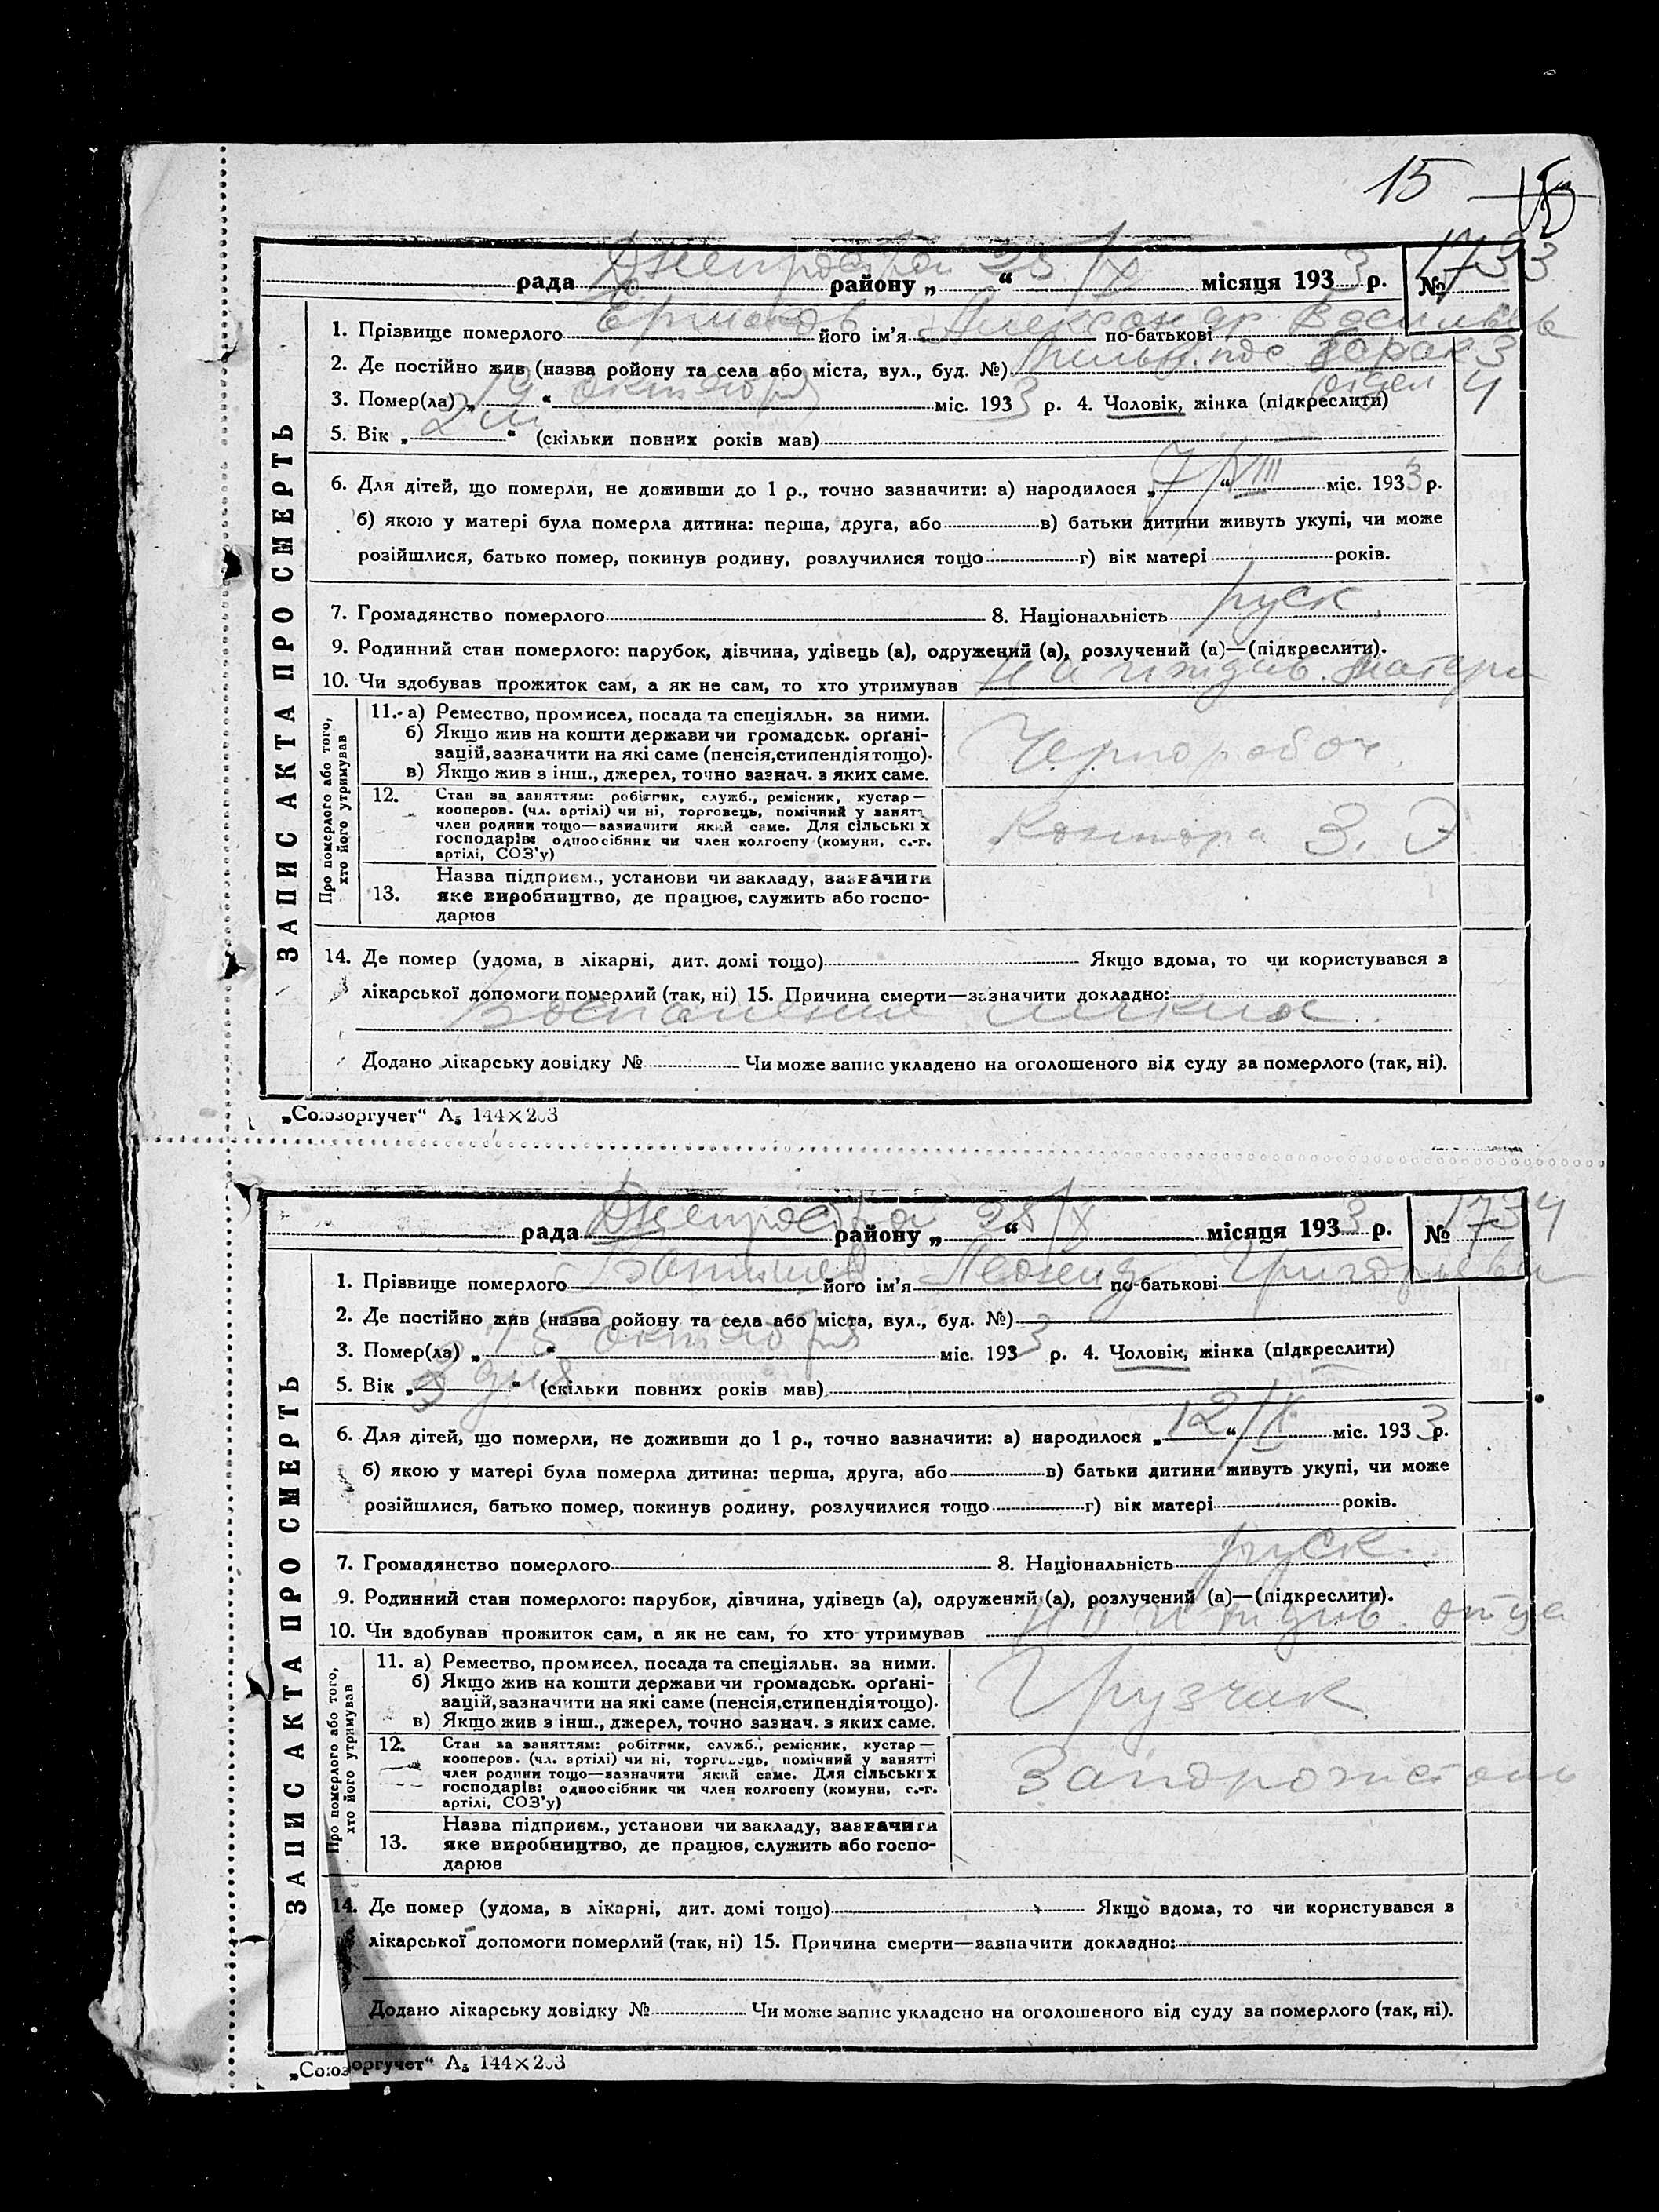 15
рада Днепрострой району „28“ /X місяця 1933 р. № 1733
1. Прізвище померлого Ермаков його ім'я Александр по-батькові Васильев
2. Де постійно жив (назва району та села або міста, вул., буд. №) пос. барак 3
отдел 4
3. Помер(ла) „19“ октября міс. 1933 р. 4. Чоловік, жінка (підкреслити)
5. Вік „2 м“ (скільки повних років мав)
6. Для дітей, що померли, не доживши до 1 р., точно зазначити: а) народилося „7“ /VIII міс. 1933 р.
б) якою у матері була померла дитина: перша, друга, або в) батьки дитини живуть укупі, чи може
розійшлися, батько помер, покинув родину, розлучилися тощо г) вік матері років.
7. Громадянство померлого 8. Національність руск.
9. Родинний стан померлого: парубок, дівчина, удівець (а), одружений (а), розлучений (а)—(підкреслити).
10. Чи здобував прожиток сам, а як не сам, то хто утримував на иждив. матери
ЗАПИС АКТА ПРО СМЕРТЬ
Про померлого або того, хто його утримував
11. а) Ремество, промисел, посада та спеціяльн. за ними.
б) Якщо жив на кошти держави чи громадськ. орґані-
зацій, зазначити на які саме (пенсія, стипендія тощо).
в) Якщо жив з інш., джерел, точно зазнач. з яких саме.
Чернорабоч.
12. Стан за заняттям: робітник, служб., ремісник, кустар—
кооперов. (чл. артілі) чи ні, торговець, помічний у занятті
член родини тощо—зазначити який саме. Для сільських
господарів: одноосібник чи член колгоспу (комуни, с.-г.
артілі, СОЗ'у)
Контора З. Э
13. Назва підприєм., установи чи закладу, зазначити
яке виробництво, де працює, служить або госпо-
дарює
14. Де помер (удома, в лікарні, дит. домі тощо) Якщо вдома, то чи користувався з
лікарської допомоги померлий (так, ні) 15. Причина смерти—зазначити докладно:
Воспаление
Додано лікарську довідку № Чи може запис укладено на оголошеного від суду за померлого (так, ні).
„Союзоргучет“ А5 144×203
рада Днепрострой району „28“ /X місяця 1933 р. № 1734
1. Прізвище померлого його ім'я Леонид по-батькові Григорьеви
2. Де постійно жив (назва району та села або міста, вул., буд. №)
3. Помер(ла) „15“ октября міс. 1933 р. 4. Чоловік, жінка (підкреслити)
5. Вік „3 дня“ (скільки повних років мав)
6. Для дітей, що померли, не доживши до 1 р., точно зазначити: а) народилося „12“ /X міс. 1933 р.
б) якою у матері була померла дитина: перша, друга, або в) батьки дитини живуть укупі, чи може
розійшлися, батько помер, покинув родину, розлучилися тощо г) вік матері років.
7. Громадянство померлого 8. Національність руск.
9. Родинний стан померлого: парубок, дівчина, удівець (а), одружений (а), розлучений (а)—(підкреслити).
10. Чи здобував прожиток сам, а як не сам, то хто утримував на иждив. отца
ЗАПИС АКТА ПРО СМЕРТЬ
Про померлого або того, хто його утримував
11. а) Ремество, промисел, посада та спеціяльн. за ними.
б) Якщо жив на кошти держави чи громадськ. орґані-
зацій, зазначити на які саме (пенсія, стипендія тощо).
в) Якщо жив з інш., джерел, точно зазнач. з яких саме.
Грузчик
12. Стан за заняттям: робітник, служб., ремісник, кустар—
кооперов. (чл. артілі) чи ні, торговець, помічний у занятті
член родини тощо—зазначити який саме. Для сільських
господарів: одноосібник чи член колгоспу (комуни, с.-г.
артілі, СОЗ'у)
Запорожсталь
13. Назва підприєм., установи чи закладу, зазначити
яке виробництво, де працює, служить або госпо-
дарює
14. Де помер (удома, в лікарні, дит. домі тощо) Якщо вдома, то чи користувався з
лікарської допомоги померлий (так, ні) 15. Причина смерти—зазначити докладно:
Додано лікарську довідку № Чи може запис укладено на оголошеного від суду за померлого (так, ні).
„Союзоргучет“ А5 144×203